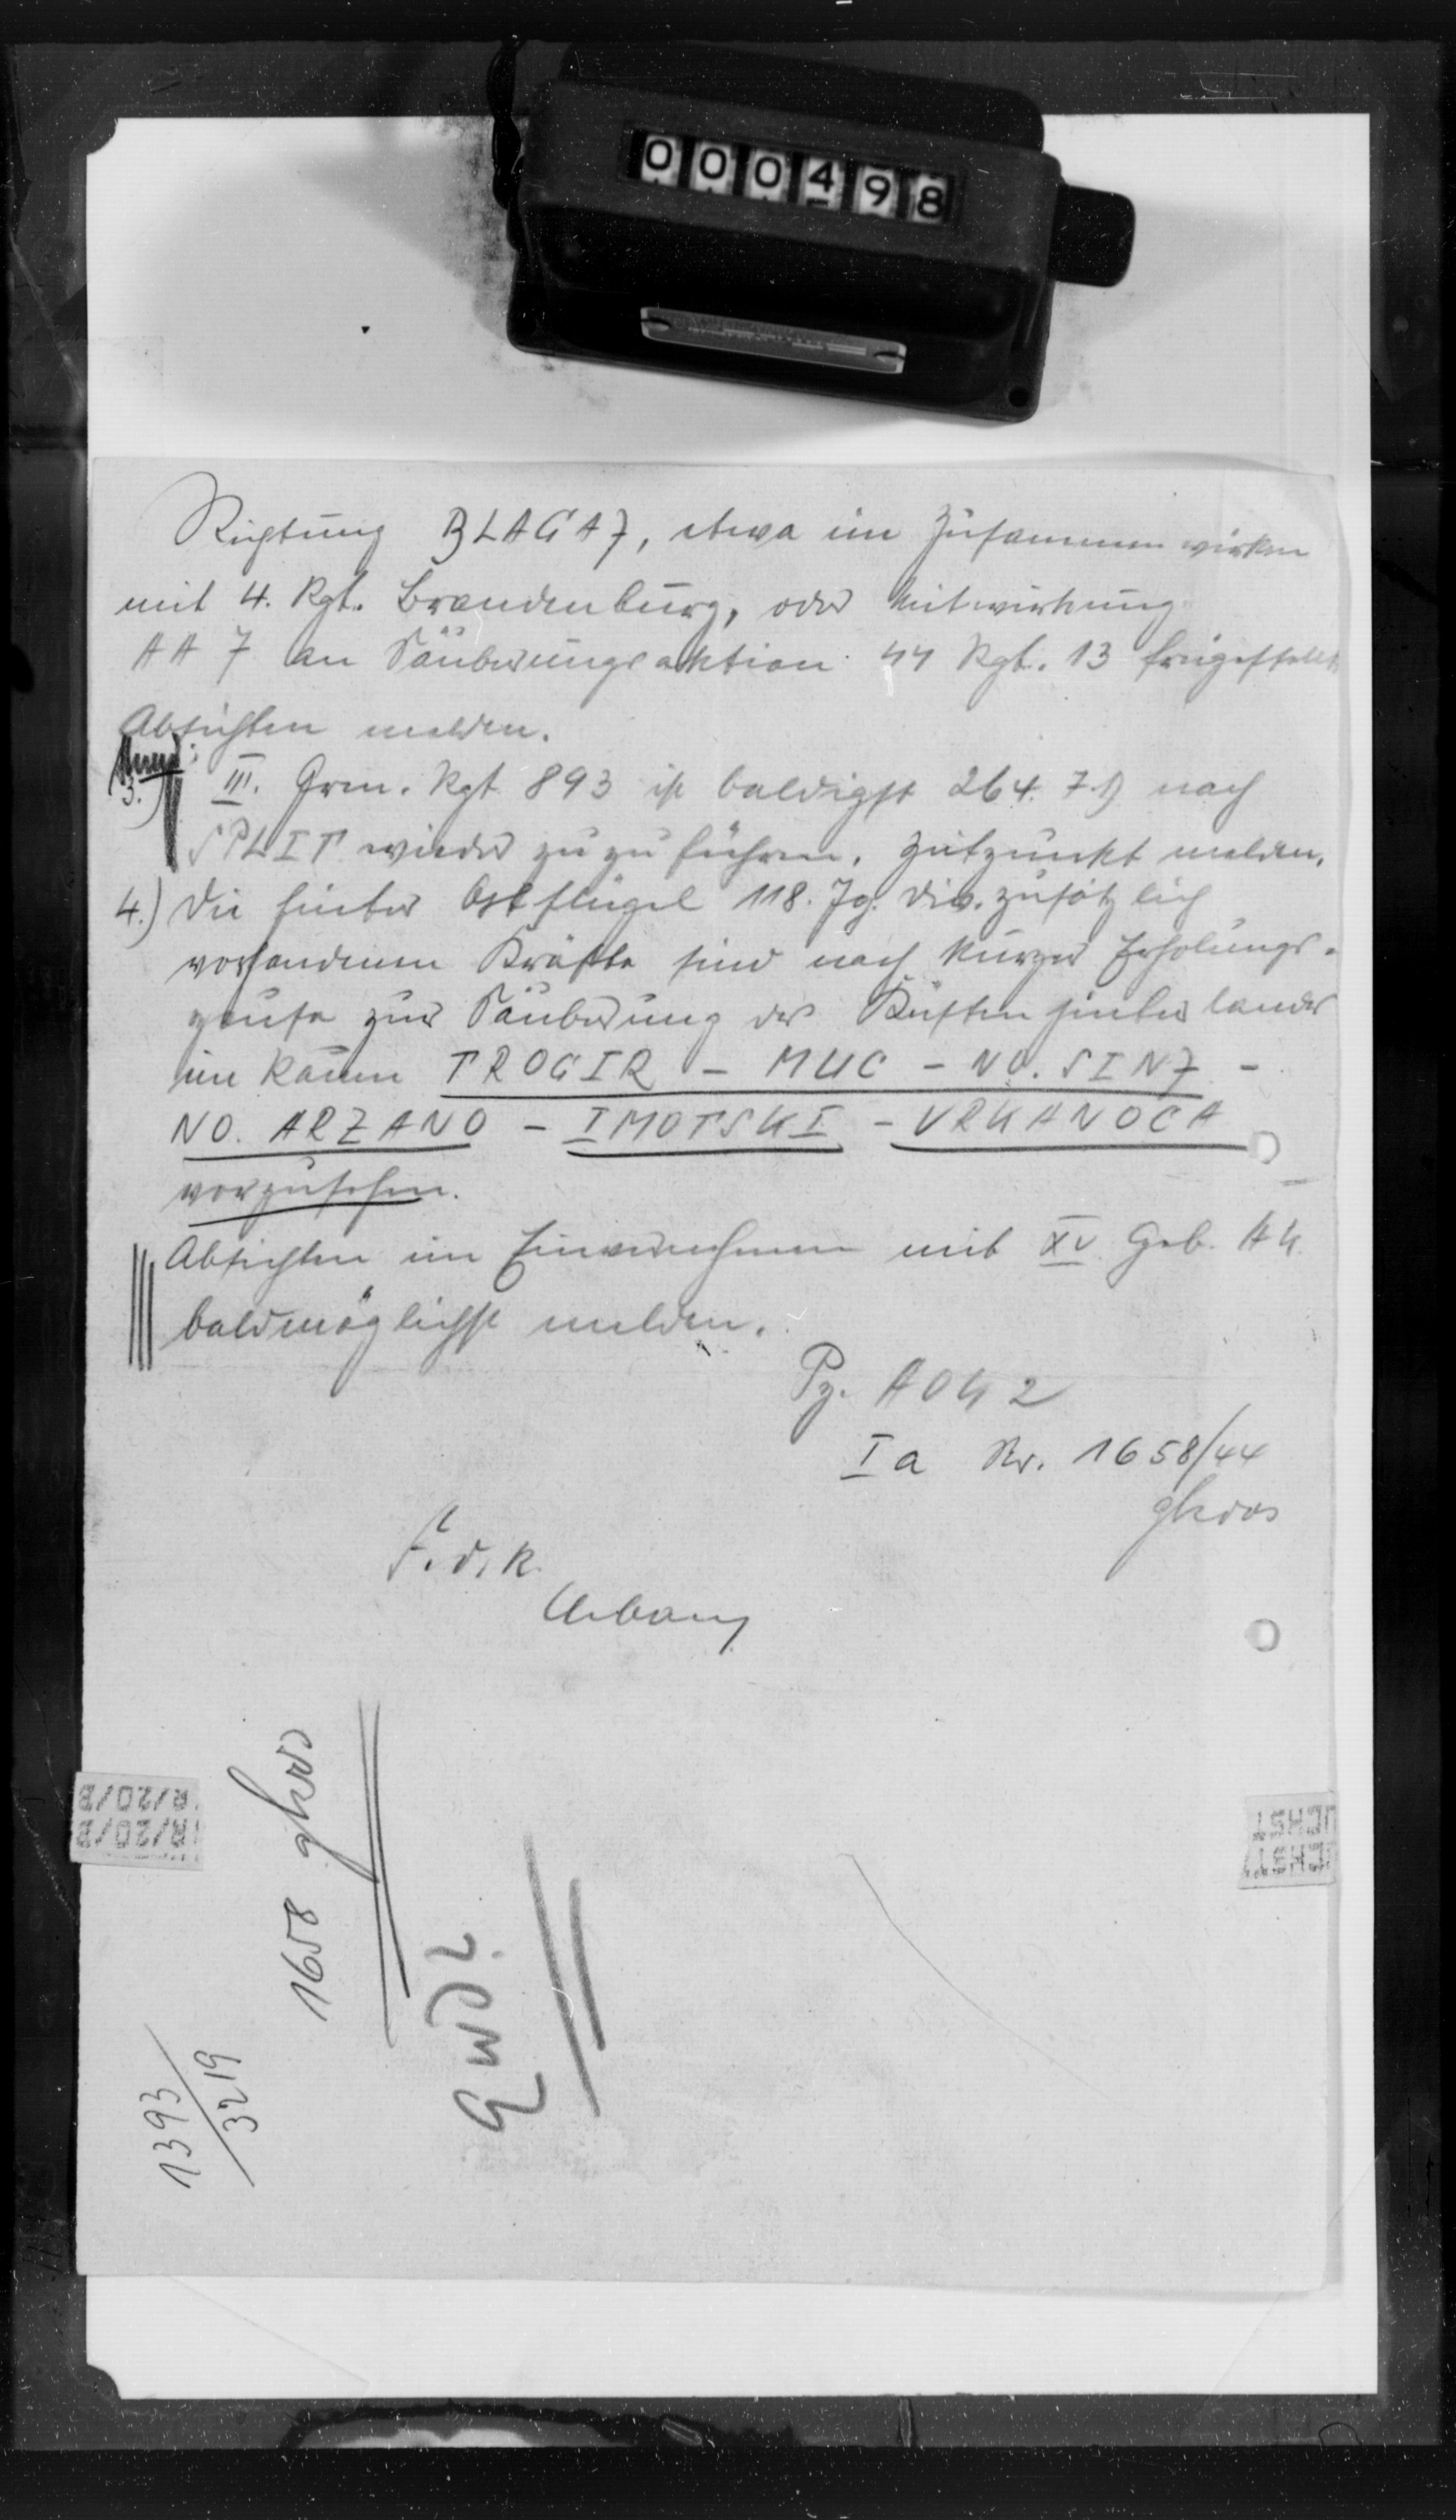 000498
Richtung BLAGAJ, etwa im Zusammenwirken
mit 4. Rgt. Brandenburg, oder Mitwirkung
AA 7 an Säuberungsaktion SS Rgt. 13 freigestellt.
Absichten melden.
3.) III. Gren. Rgt. 893 ist baldigst 264. J.D nach
SPLIT wieder zuzuführen. Zeitpunkt melden.
4.) Die hinter Ostflügel 118. Jg. Div. zusätzlich
vorhandenen Kräfte sind nach kurzer Erholungs-
pause zur Säuberung des Küstenhinterlandes
im Raum TROGIR - MUC - NO. SINJ -
NO. ARZANO - IMOTSKI - VRKANOCA
vorzusehen.
Absichten im Einvernehmen mit XV. Geb. AK
baldmöglichst melden.
Pz. AOK 2
Ia Nr. 1658/44
gkdos
F.d.R.
1658 gkdos
1393
3219
R/20/B
R/20/B
UCHST
UCHST